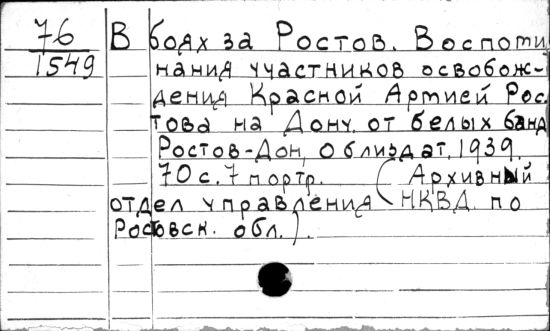 76
1549
В боях за Ростов. Воспоми
нания участников освобож-
дения Красной Армией Рос.
това на Дону от белых банд
Ростов-Дон, Облиздат, 1939.
70 с. 7 портр. (Архивный
отдел управления НКВД по
Ростовск. обл.).